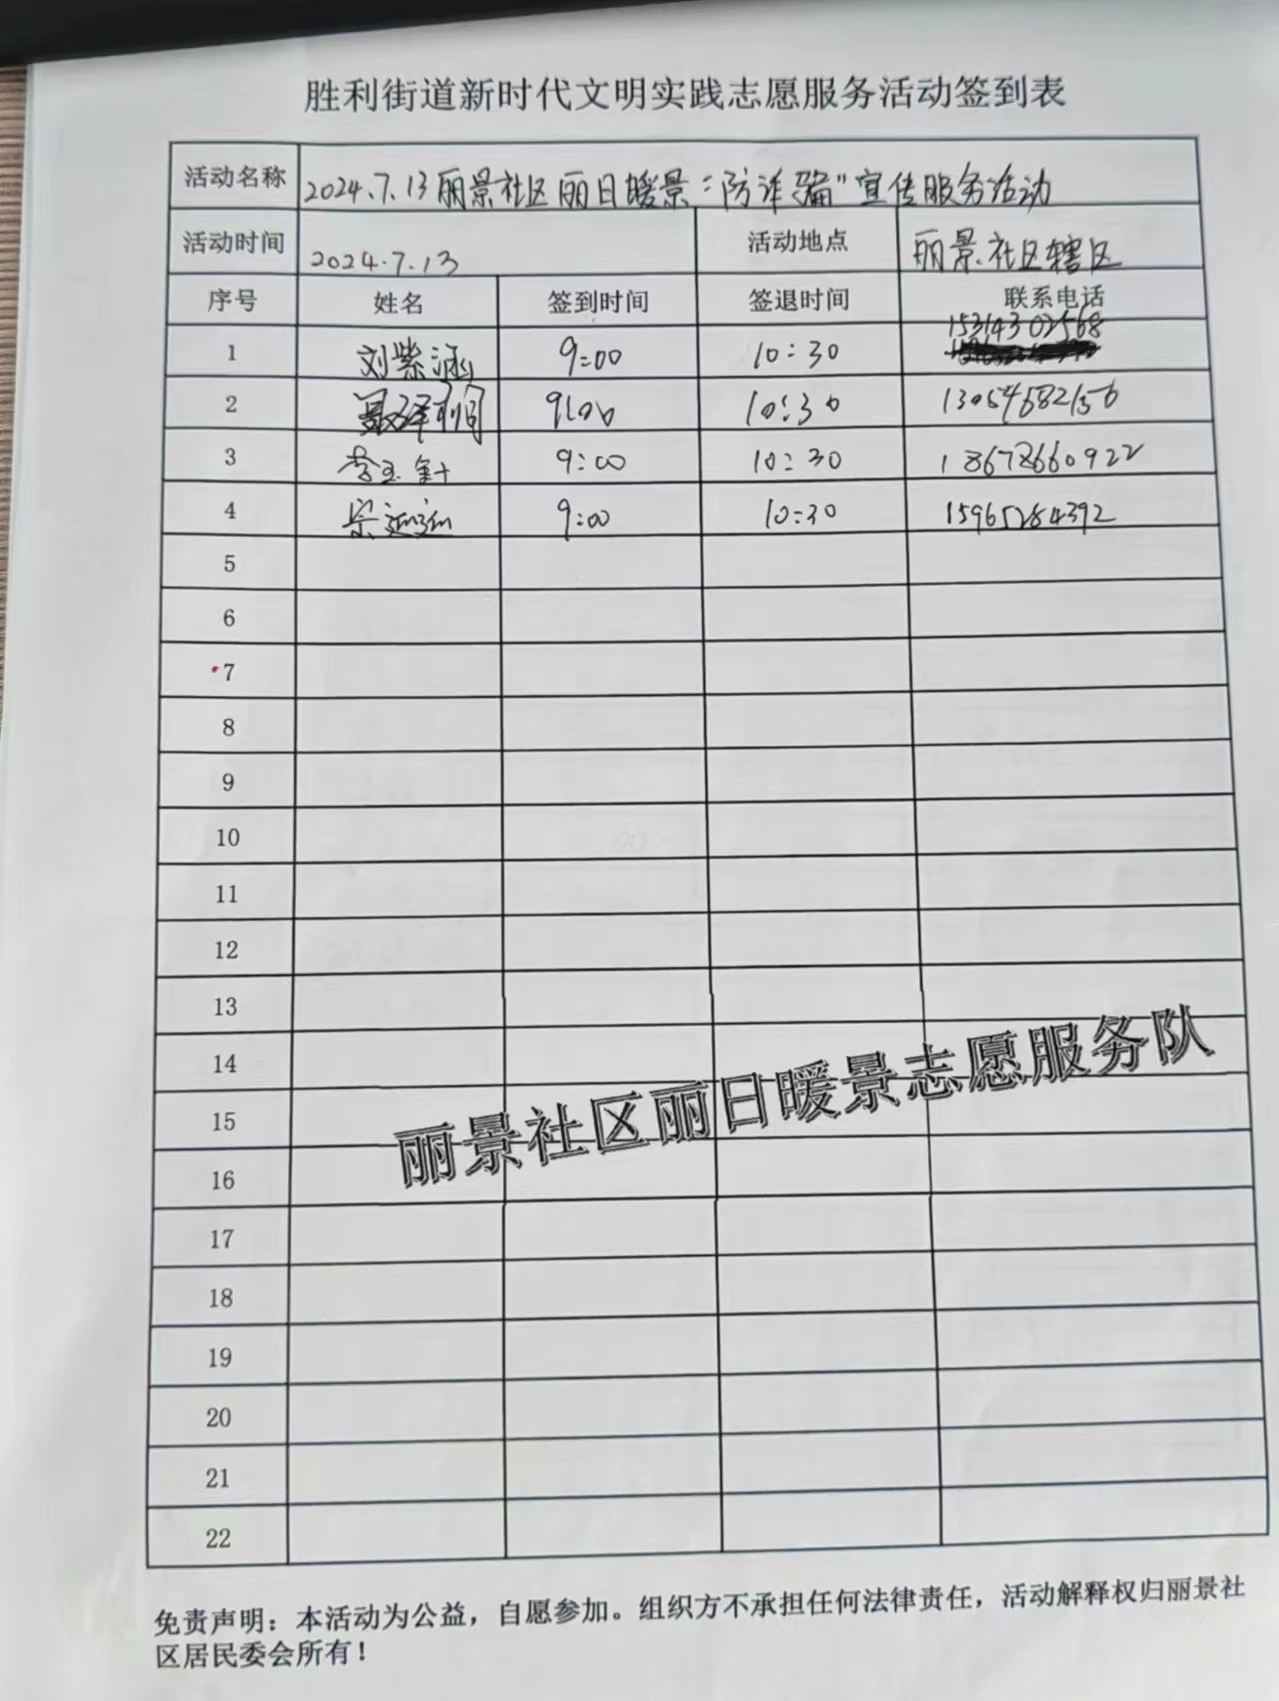 胜利街道新时代文明实践志愿服务活动签到表
活动名称 2024.7.13丽景社区丽日暖景:"防诈骗"宣传服务活动
活动时间 2024.7.13 活动地点 丽景社区辖区
序号 姓名 签到时间 签退时间 联系电话
1 刘紫涵 9:00 10:30 15314302568
2 9:00 10:30 13054682156
3 9:00 10:30 18678660922
4 9:00 10:30 15965284392
5
6
7
8
9
10
11
12
13
14
15
16
17
18
19
20
21
22
丽景社区丽日暖景志愿服务队
免责声明：本活动为公益，自愿参加。组织方不承担任何法律责任，活动解释权归丽景社
区居民委会所有！